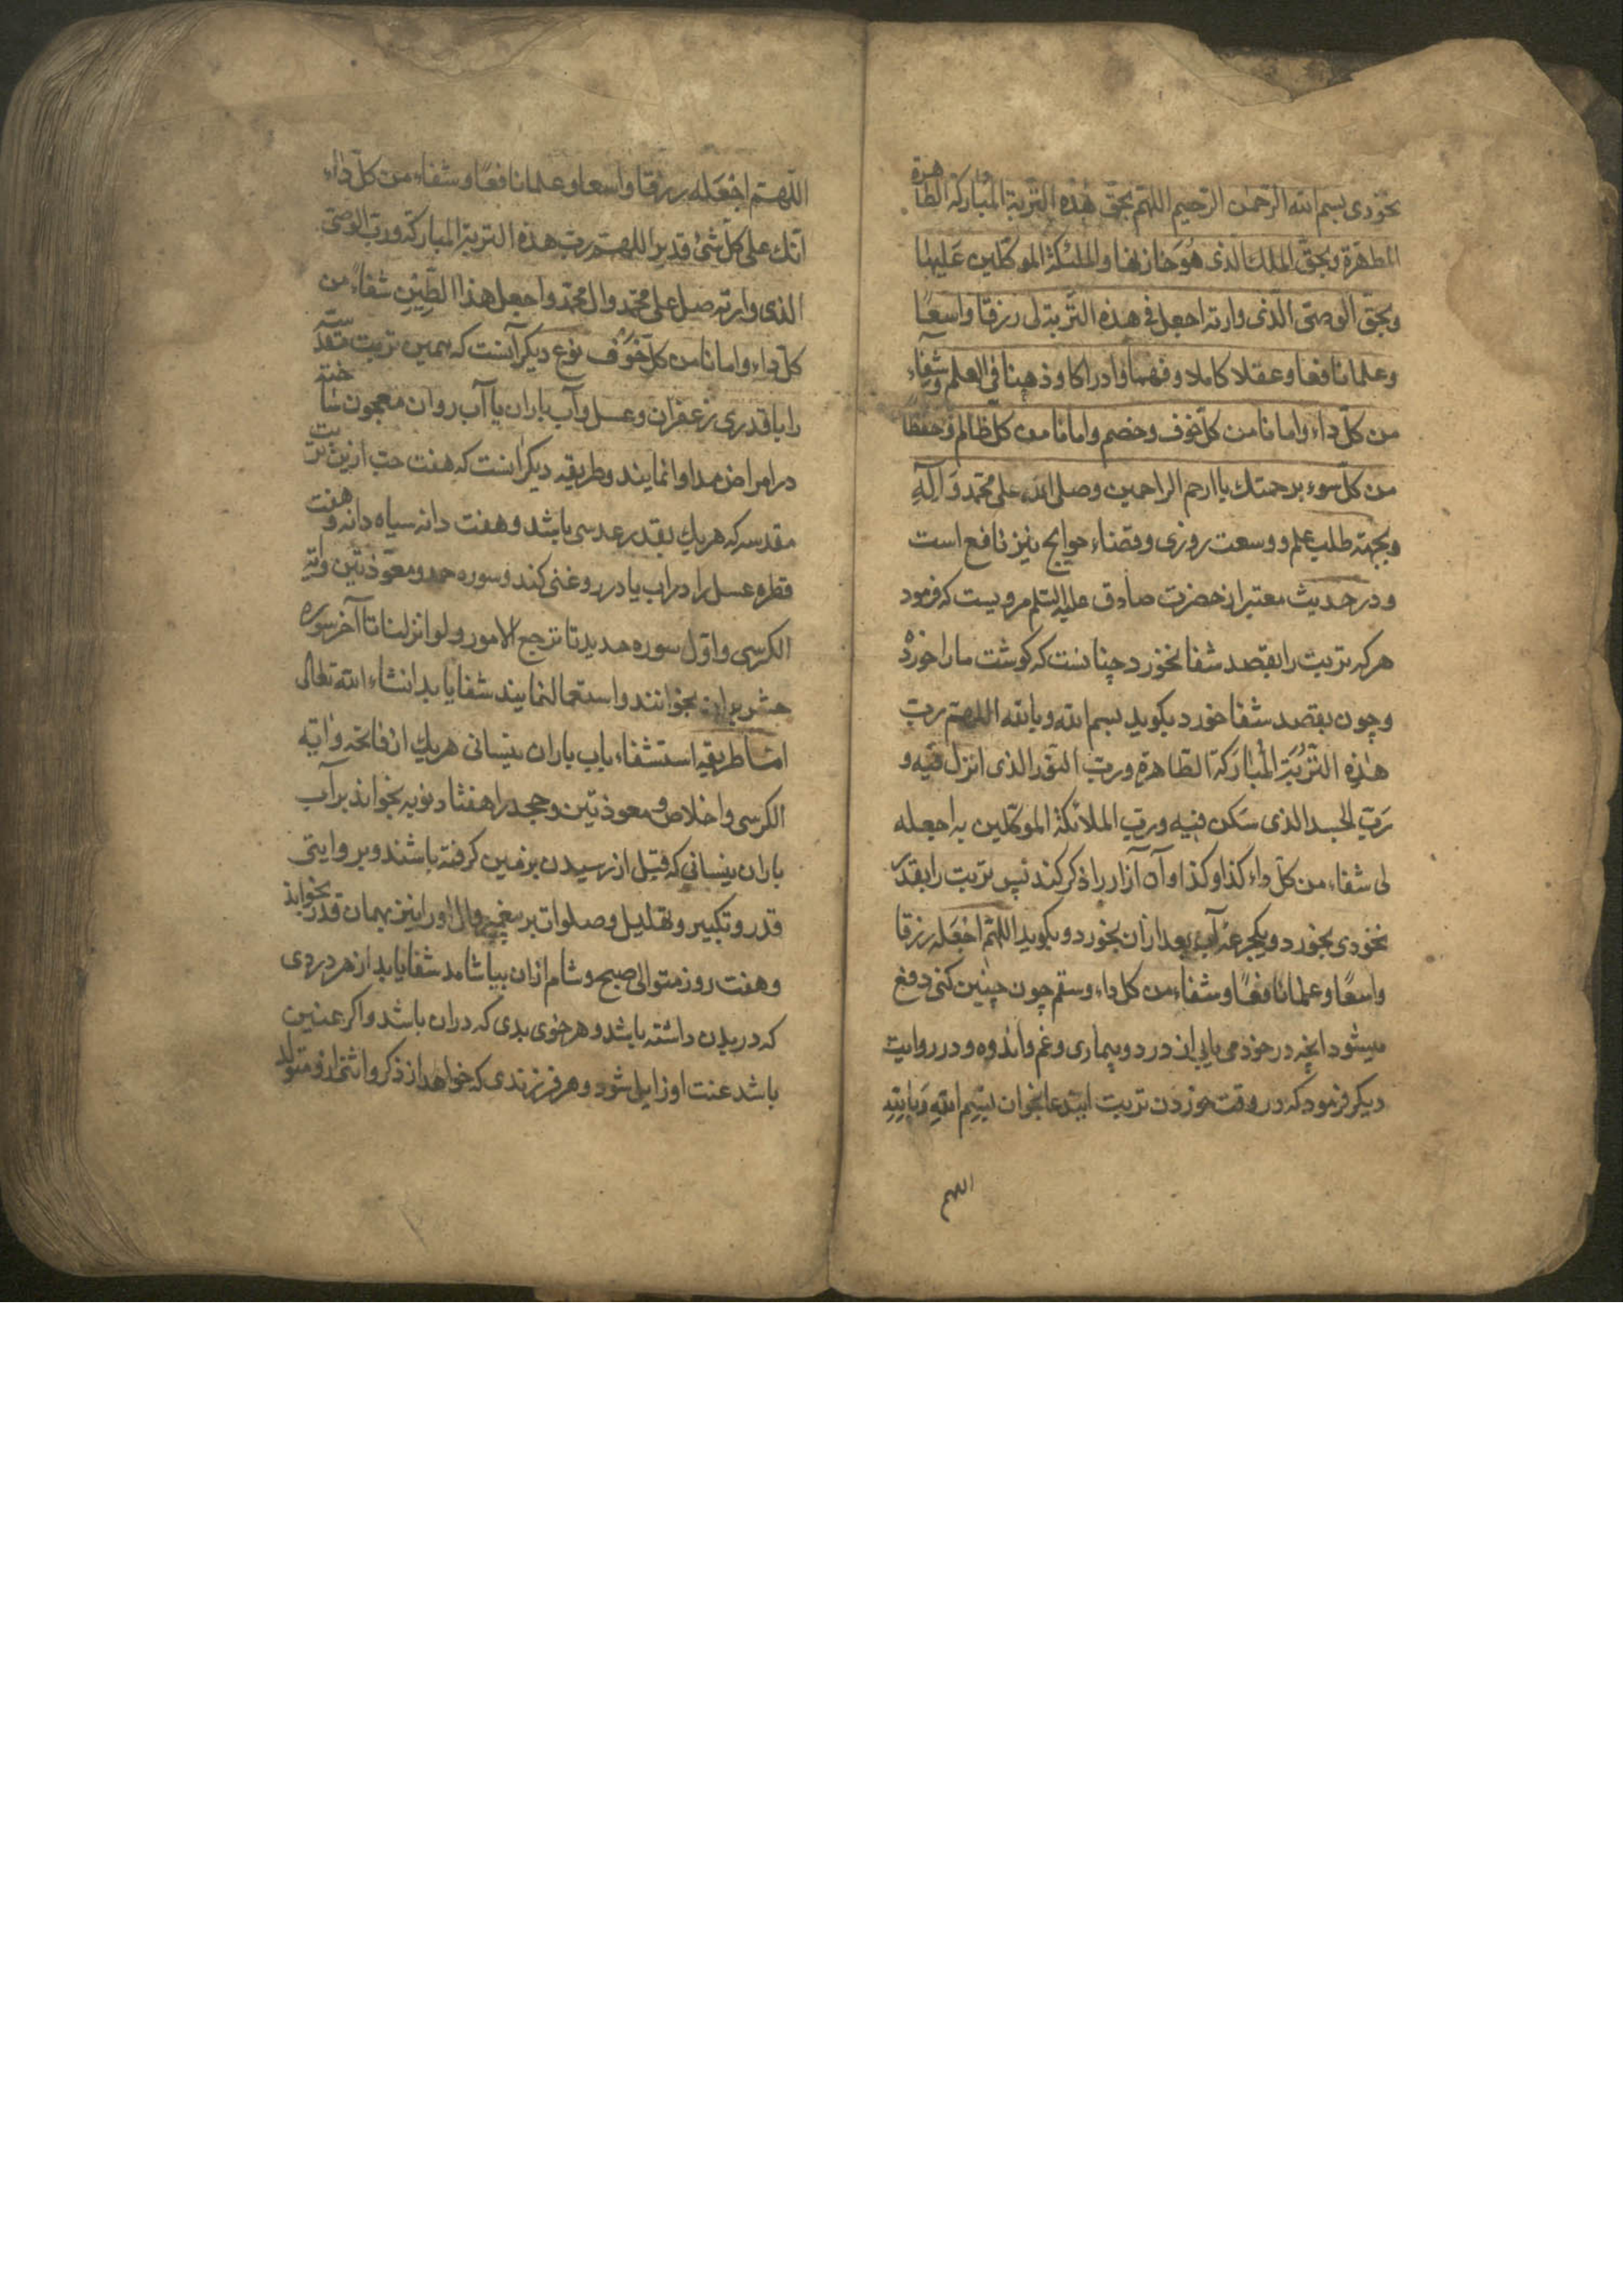 نخودی بسم الله الرحمن الرحیم اللهم بحق هذه التربة المبارکة الطاهرة
المطهرة وبحق الملك الذی هو خازنها والملئکة الموکلین علیها
وبحق الوصی الذی وارته اجعل فی هذه التربة لی رزقا واسعًا
وعلما نافعا وعقلا کاملا وفهما وادراکا وذهنا فی العلم وشفاء
من کل داء وامانا من کل خوف وخصم وامانا من کل ظالم وحفظًا
من کل سوء برحمتك یا ارحم الراحمین وصلی الله علی محمد وآله
وبجهته طلب علم ووسعت روزی وقضاء حوایج نیز نافع است
ودر حدیث معتبر از حضرت صادق علیه السلم مرویست که فرمود
هر که تربت را بقصد شفا نخورد چنانست که کوشت ما را خورد
وچون بقصد شفا خورد بکوید بسم الله وبالله اللهم رب
هذه التربة المبارکة الطاهرة ورب النور الذی انزل فیه و
رب الجسد الذی سکن فیه ورب الملائکة الموکلین به اجعله
لی شفاء من کل داء کذا وکذا وآن آزار را ذکر کند پس تربت را بقدر
نخودی بخورد ویکجرعه آب بعد از آن بخورد وبکوید اللهم اجعله رزقا
واسعًا وعلما نافعًا وشفاء من کل داء وسقم چون چنین کنی دفع
میشود انچه در خود می یابی از درد وبیماری وغم واندوه ودر روایت
دیکر فرمود که در وقت خوردن تربت ایندعا بخوان بسم الله وبالله
اللهم
اللهم اجعله رزقا واسعا وعلما نافعًا وشفاء من کل داء
انك علی کل شیء قدیر اللهم رب هذه التربة المبارکة ورب الوصی
الذی وارته صل علی محمد وال محمد واجعل هذا الطین شفاءً من
کل داء وامانا من کل خوف نوع دیکر آنست که همین تربت مقدسه
را با قدری زعفران وعسل وآب باران یا آب روان معجون ساخته
در امراض مداوا نمایند وطریقه دیکر انست که هفت حب ازین تربت
مقدسه که هریك بقدر عدسی باشد وهفت دانه سیاه دانه وهفت
قطره عسل را در اب یا در روغنی کند وسوره حمد ومعوذتین وایة
الکرسی واول سوره حدید تا ترجع الامور ولو انزلنا تا آخر سوره
حشر بران بخوانند واستعمال نمایند شفا یابد انشاء الله تعالی
اما طریقه استشفاء باب باران نیسانی هریك از فاتحه وایة
الکرسی واخلاص ومعوذتین وجحد را هفتاد نوبه بخواند بر آب
باران نیسانی که قبل از رسیدن بزمین کرفته باشند وبروایتی
قدر وتکبیر وتهلیل وصلوات بر پیغمبر وال او را نیز بهمان قدر بخواند
وهفت روز متوالی صبح وشام ازان بیاشامد شفا یابد از هر دردی
که در بدن داشته باشد وهر خوی بدی که دران باشد واکر عنین
باشد عنت او زایل شود وهر فرزندی که خواهد از ذکر وانثی ازو متولد